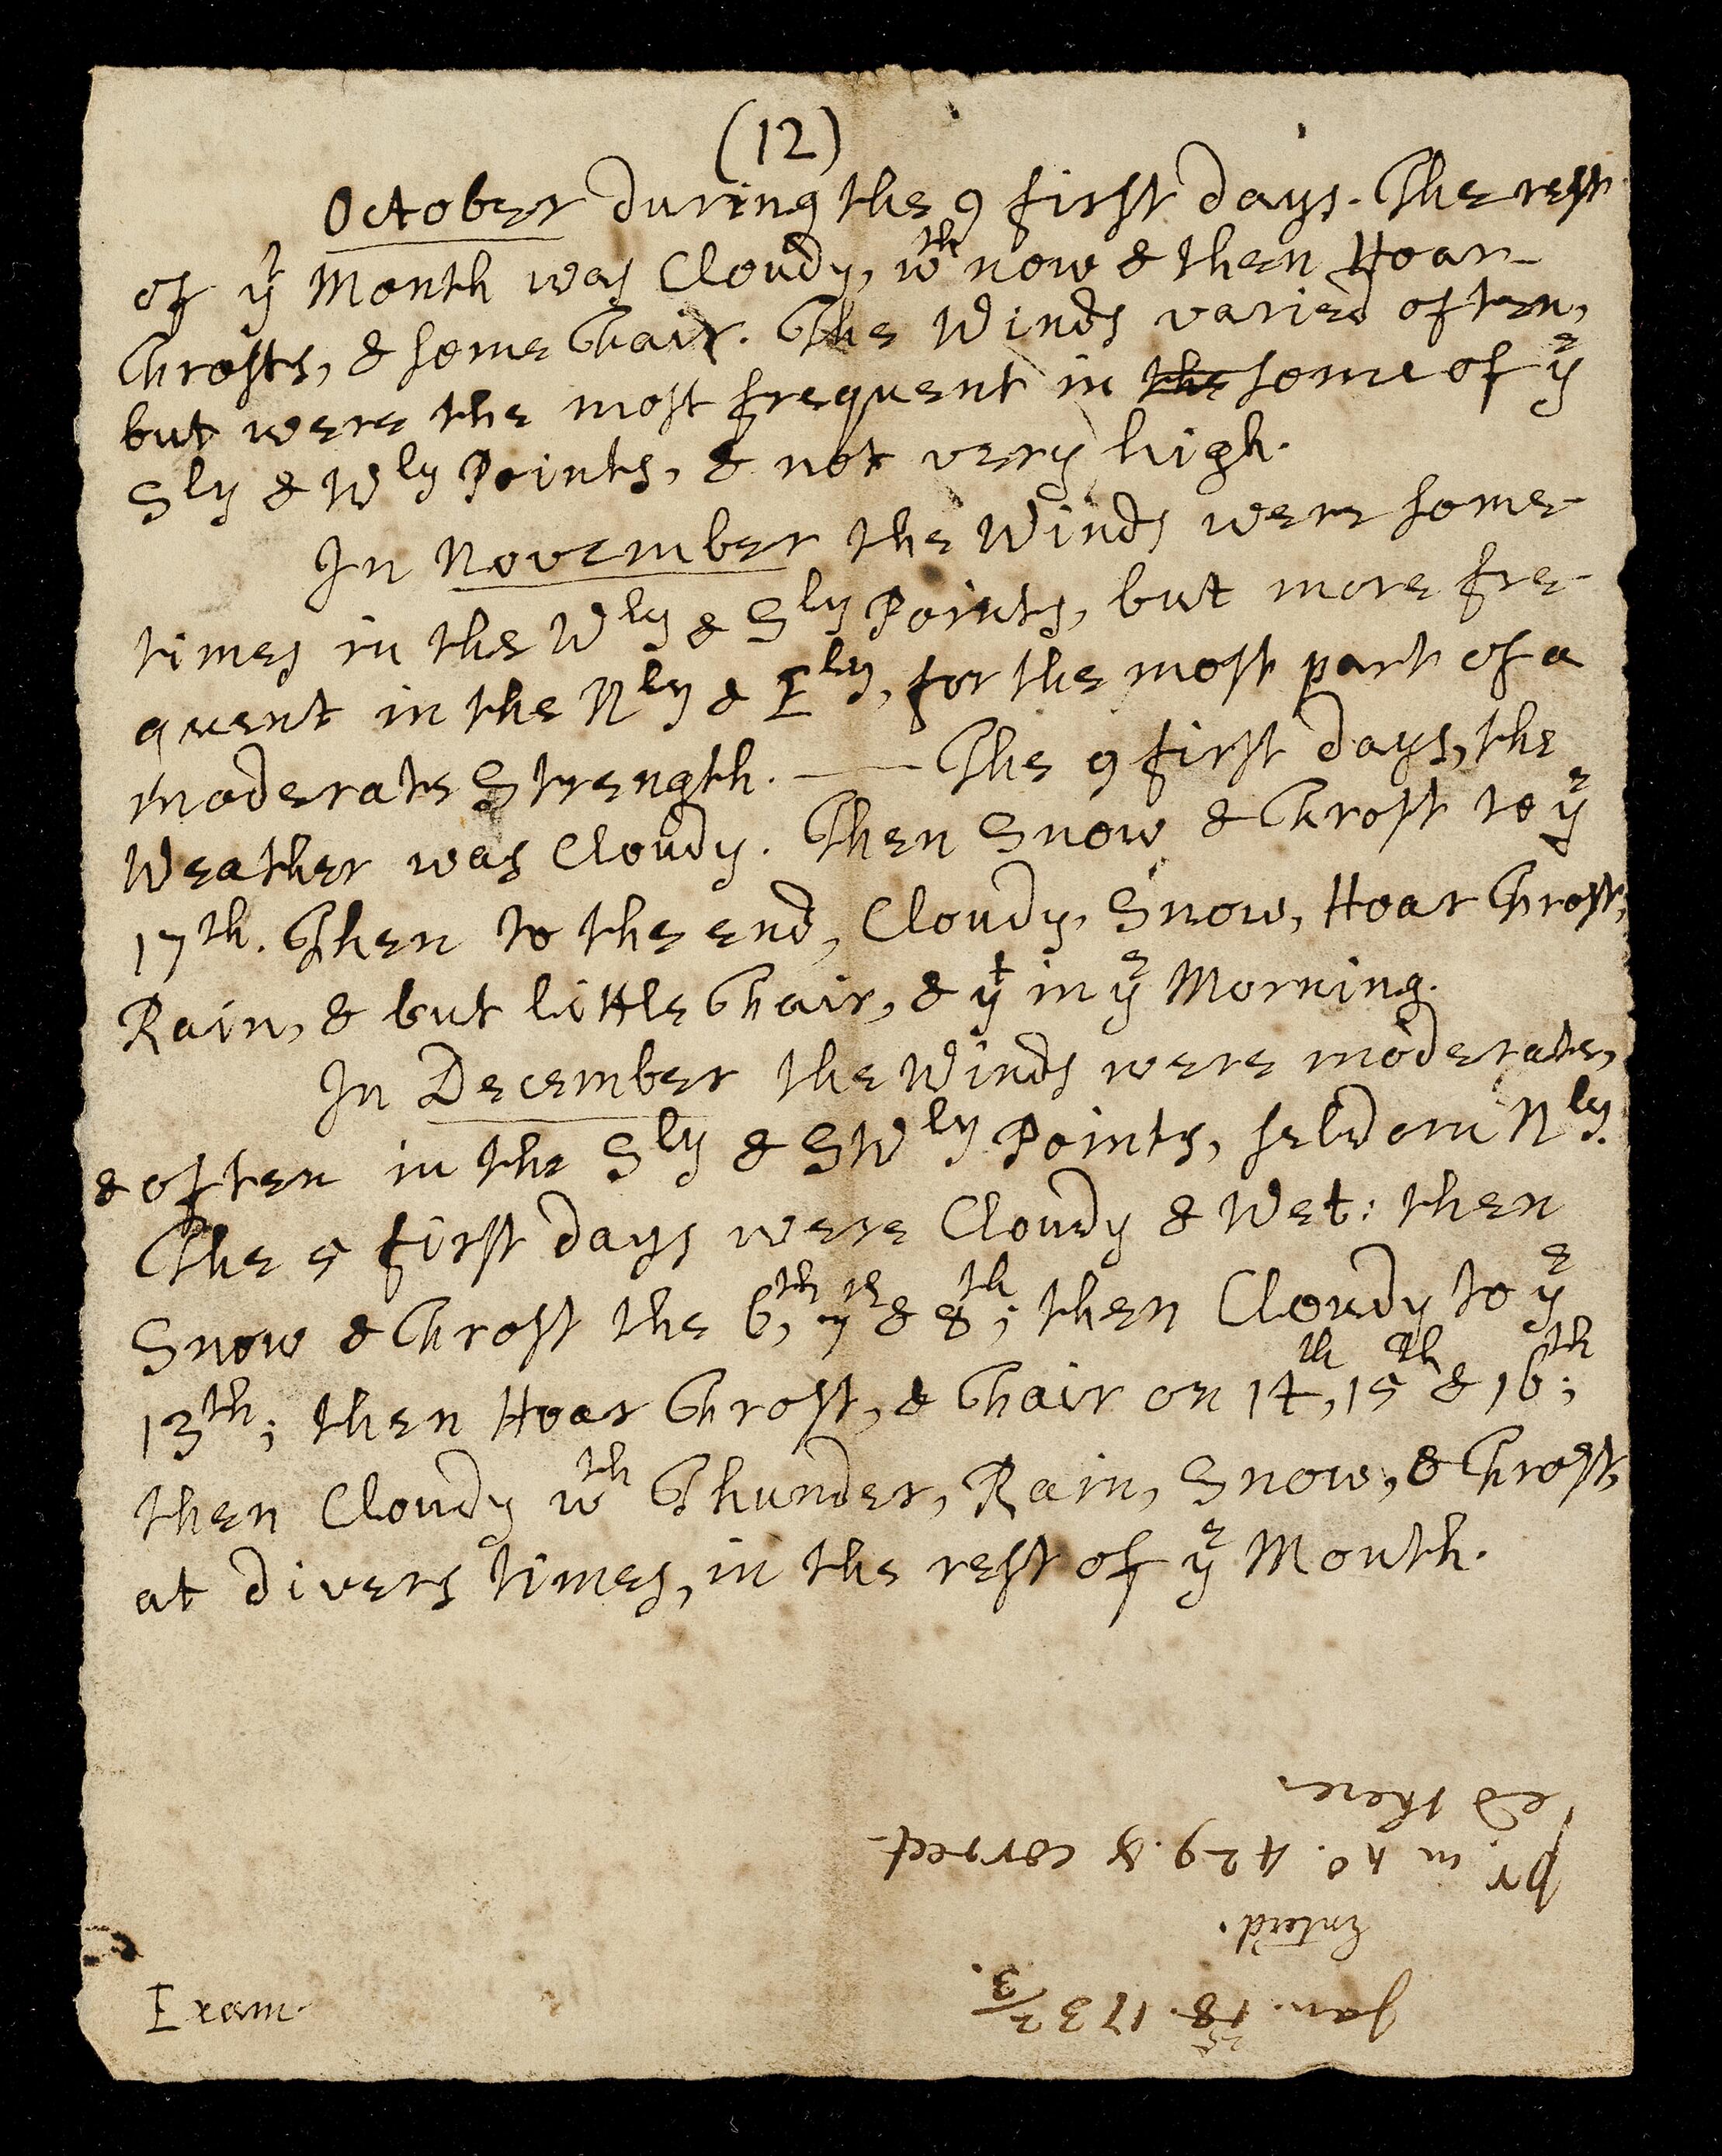 (12)
October during the 9 first days. The rest
of ye Month was Cloudy, wth now & then Hoar-
Frosts, & some Fair. The Winds varied often,
but were the most frequent in the some of ye
Sly & Wly Points, & not very high.
In November the Winds were some-
times in the Wly & Sly Points, but more fre-
quent in the Nly & Ely, for the most part of a
moderate Strength. — The 9 first days, the
Weather was Cloudy. Then Snow & Frost to ye
17th. Then to the end, Cloudy, Snow, Hoar Frost,
Rain, & but little Fair, & yt in ye Morning.
In December the Winds were moderate,
& often in the Sly & SWly Points, seldom Nly.
The 5 first days were Cloudy & Wet: then
Snow & Frost the 6th, 7th & 8th; then Cloudy to ye
13th; then Hoar Frost, & Fair on 14th, 15th & 16th;
then Cloudy wth Thunder, Rain, Snow, & Frost,
at divers times, in the rest of ye Month.
Exam.
Jan. 18. 173 2/3.
Enter'd.
pr. in no. 429. & correct-
ed there.